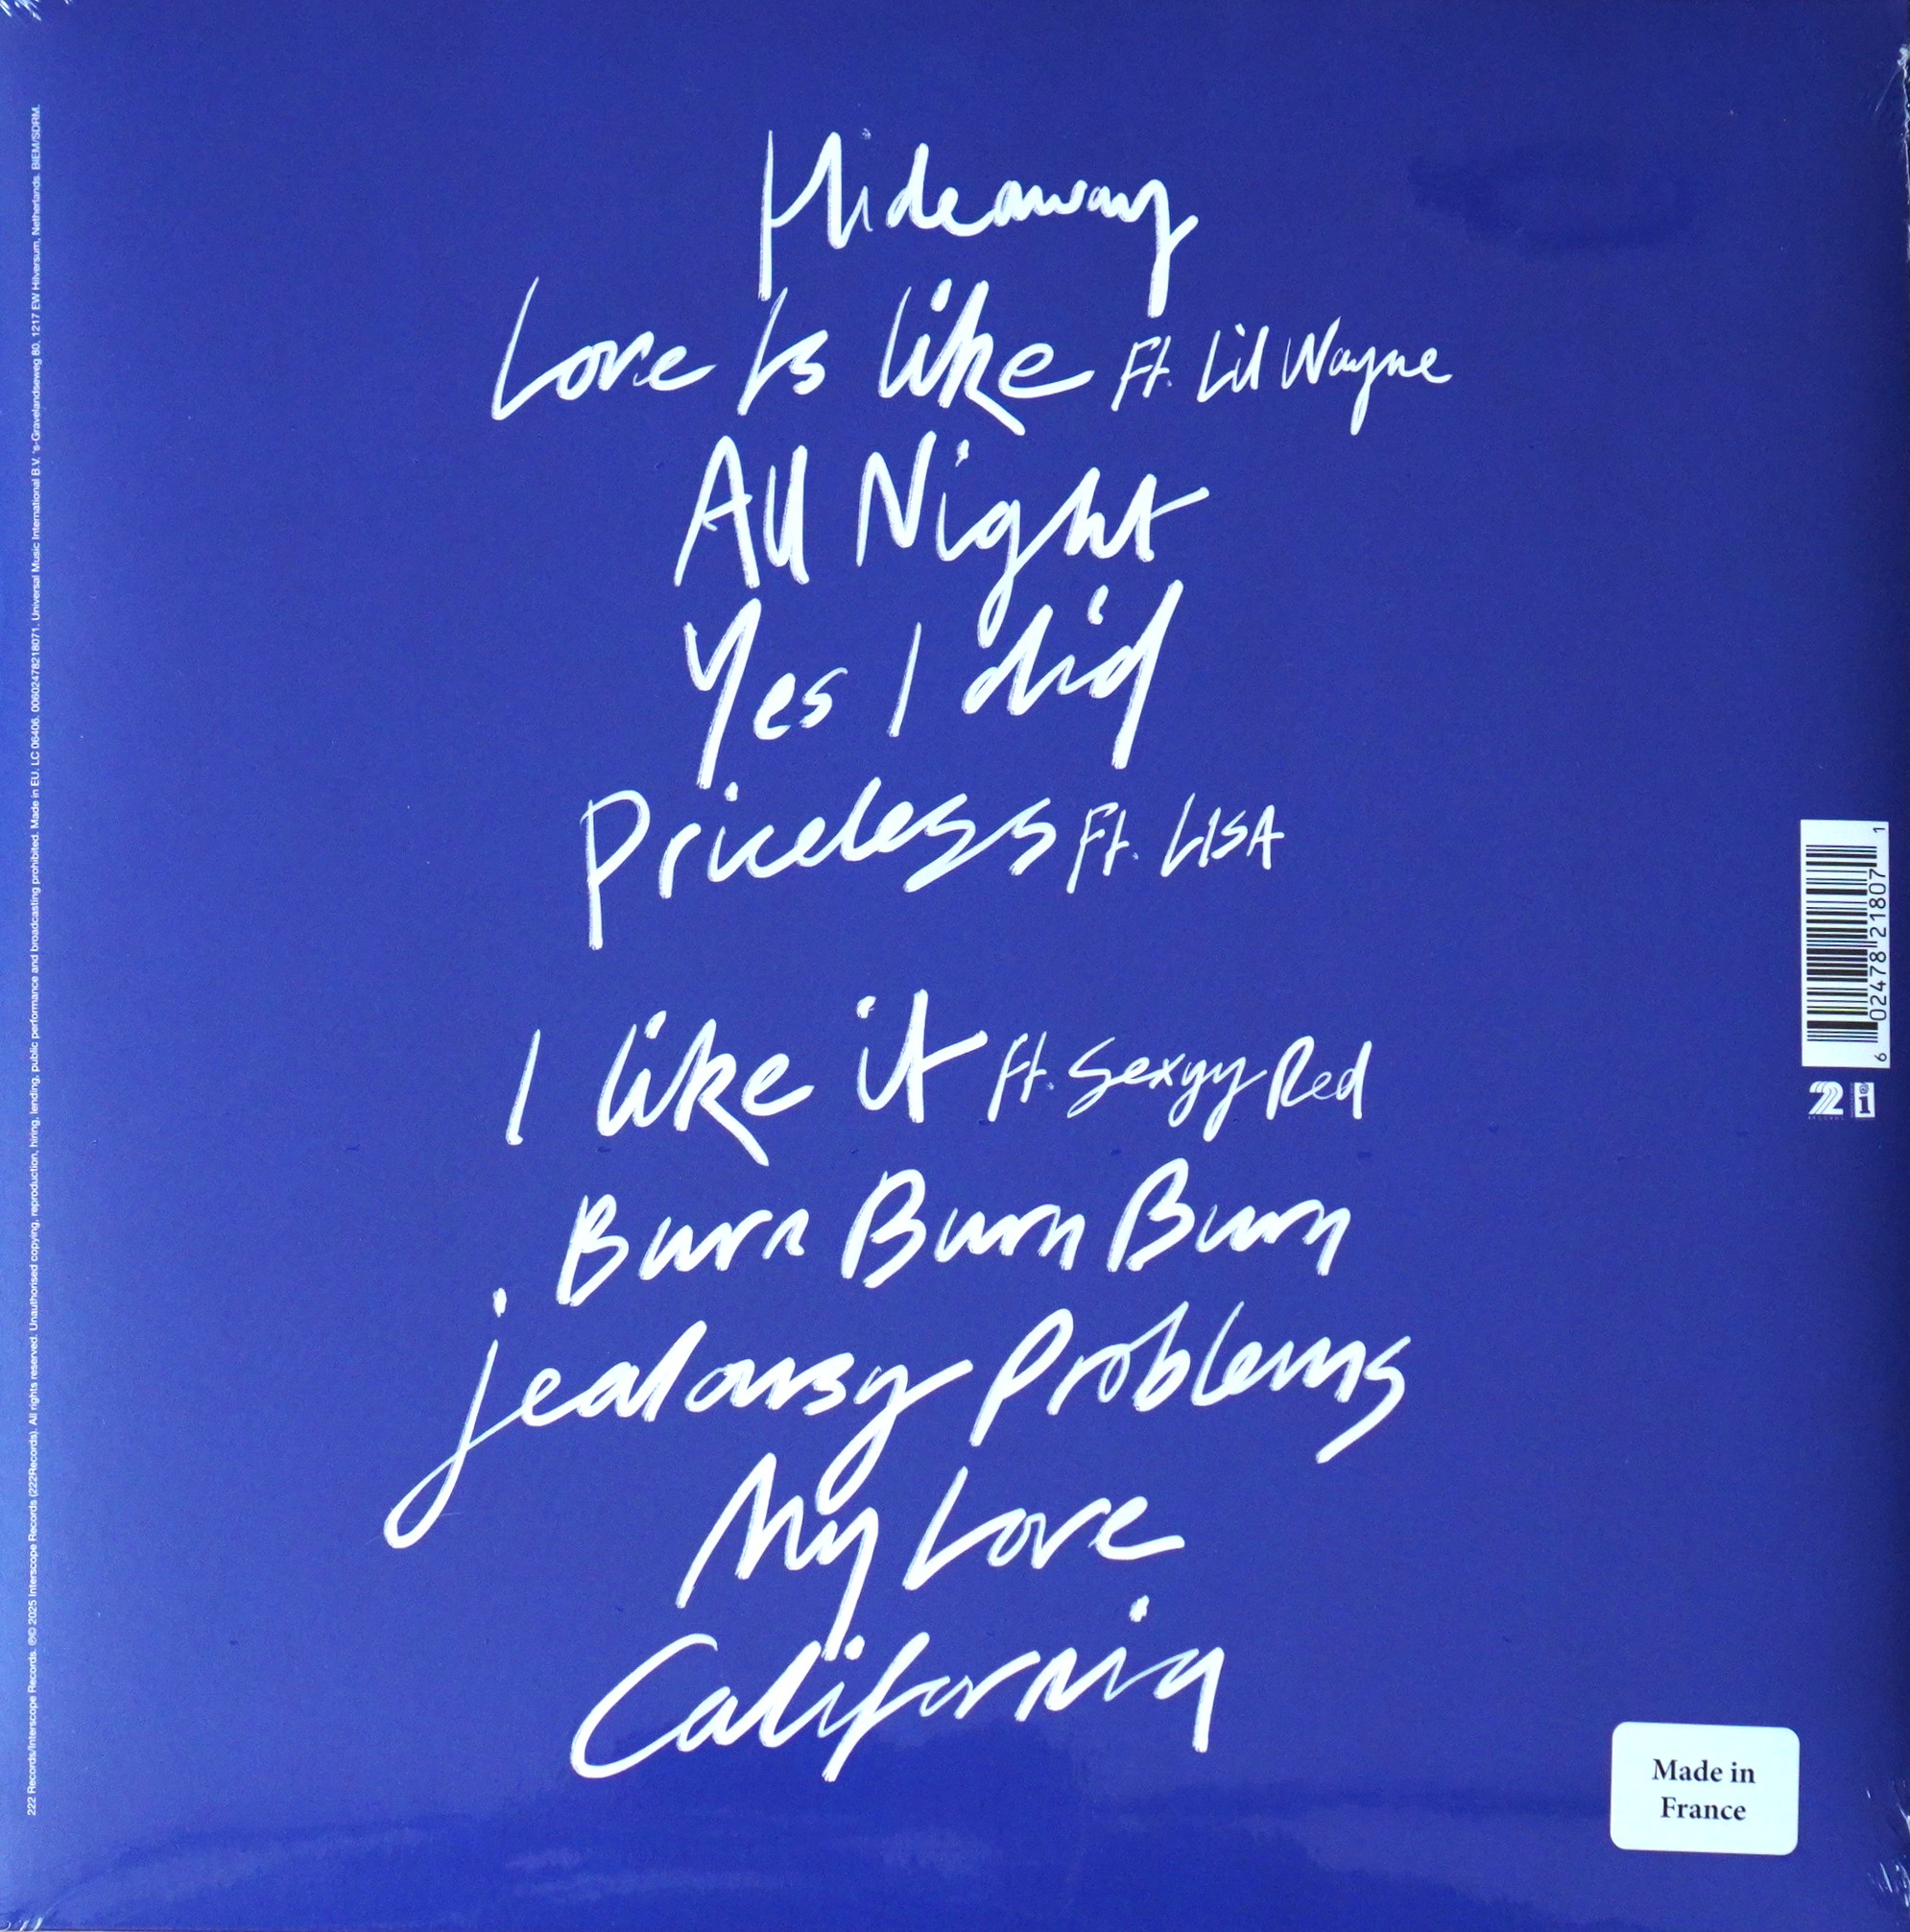 Hideaway
Love Is like Ft. Lil Wayne
All Night
Yes I did
Priceless Ft. LISA
I like it ft. Sexyy Red
Burn Burn Burn
jealousy Problems
My Love
California
222 Records/Interscope Records. ℗© 2025 Interscope Records (222Records). All rights reserved. Unauthorised copying, reproduction, hiring, lending, public performance and broadcasting prohibited. Made in EU. LC 06406. 00602478218071. Universal Music International B.V. 's-Gravelandseweg 80, 1217 EW Hilversum, Netherlands. BIEM/SDRM.
6 02478 21807 1
222
RECORDS
i
Made in
France